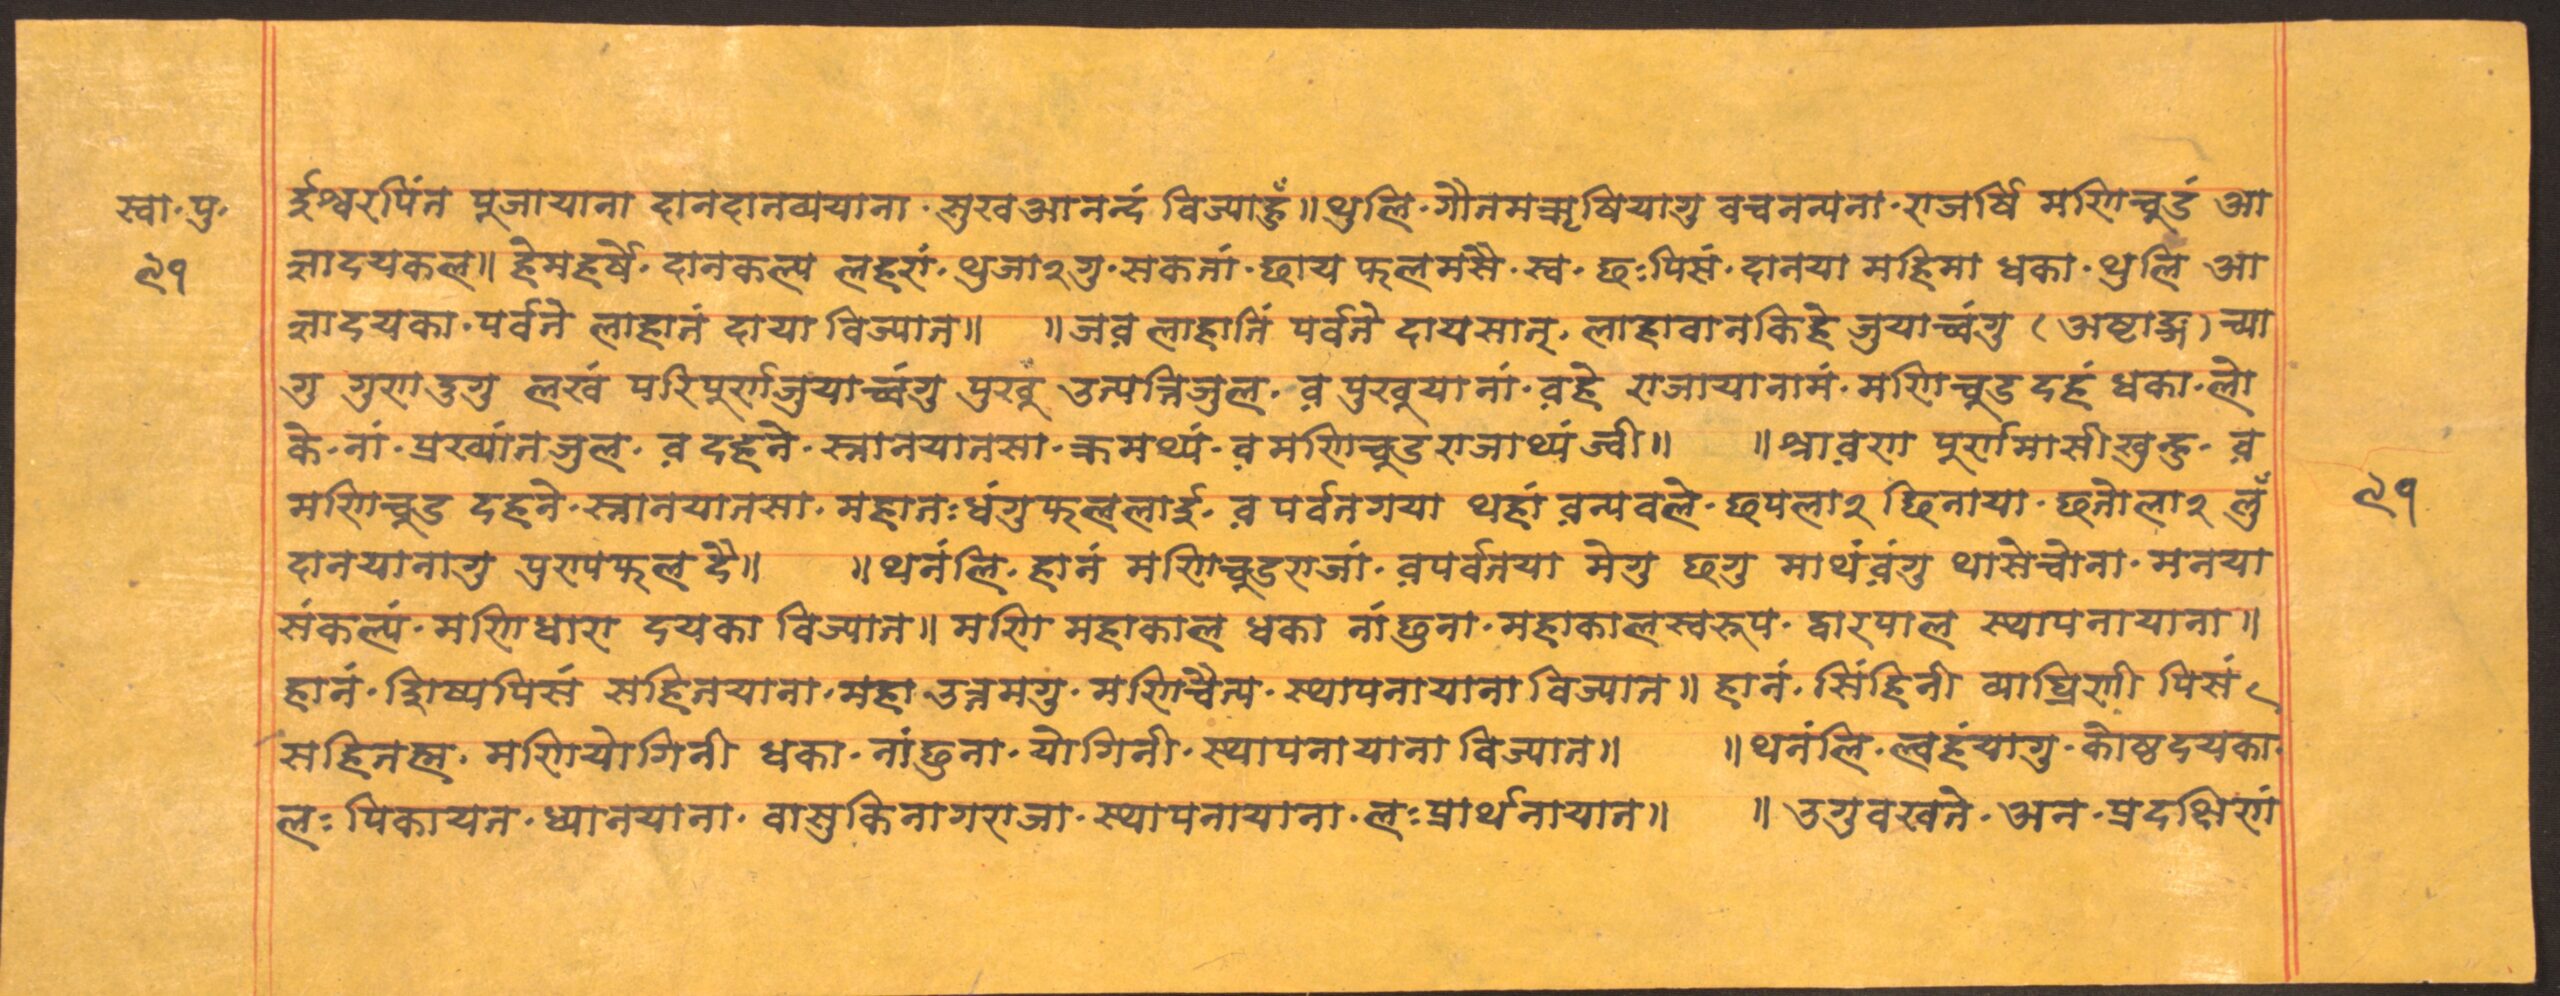 स्वा॰ पु॰
९१
ईश्वरपिंत पूजायाना दानदानव्ययाना॰ सुखआनन्दं विज्याहुँ॥ थुलि॰ गौतमऋषियागु वचनन्यना॰ राजर्षि मणिचूडं आ
ज्ञादयकल॥ हेमहर्षे॰ दानकल्प लहरां॰ थुजा२गु॰ सकतां॰ छाय फलमसै॰ स्व॰ छःपिसं॰ दानया महिमा धका॰ थुलि आ
ज्ञादयका॰ पर्वते लाहातं दाया विज्यात॥ ॥ जव़ लाहातिं पर्वते दायसात्॰ लाहावानकिहे जुयाच्वंगु (अष्टाङ्ग) च्या
गु गुणदुगु लखं परिपूर्णजुयाच्वंगु पुखू उत्पत्तिजुल॰ व़ पुखुयानां॰ व़हे राजायानामं॰ मणिचूड दहं धका॰ लो
के॰ नां॰ प्रख्यांतजुल॰ व़ दहने॰ स्नानयातसा॰ क्रमथ्यं॰ व़ मणिचूडराजाथ्यं ज्वी॥ ॥ श्राव़ण पूर्णमासीखुन्हु॰ व़
मणिचूड दहने॰ स्नानयातसा॰ महातःधंगुफललाई॰ व़ पर्वतगया थहां व़न्यवले॰ छपला२ छिनाया॰ छतोला२ लुँ
दानयानागु पुण्यफल दै॥ ॥ थनंलि॰ हानं मणिचूडराजां॰ व़पर्वतया मेगु छगु माथंव़ंगु थासेच्वोना॰ मनया
संकल्पं॰ मणिधारा दयका विज्यात॥ मणि महाकाल धका नांछुना॰ महाकालस्वरूप॰ द्वारपाल स्थापनायाना॥
हानं॰ शिष्यपिसं सहितयाना॰ महा उत्तमगु॰ मणिचैत्य॰ स्थापनायाना विज्यात॥ हानं॰ सिंहिनी व्याघ्रिणी पिसं
सहितह्म॰ मणियोगिनी धका॰ नांछुना॰ योगिनी॰ स्थापनायाना विज्यात॥ ॥ थनंलि॰ ल्वहंयागु॰ कोष्ठदयका॰
लः पिकायत॰ ध्यानयाना॰ वासुकिनागराजा॰ स्थापनायाना॰ लःप्रार्थनायात॥ ॥ उगुवखते॰ अन॰ प्रदक्षिणां
९१